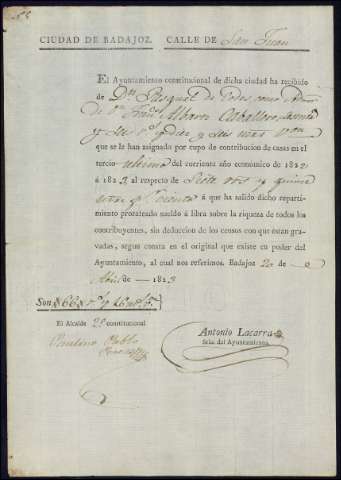 CIUDAD DE BADAJOZ. CALLE DE San Juan
El Ayuntamiento constitucional de dicha ciudad ha recibido
de Dn. Pasqual de
de Dn. Franco. Albarto Caballero
y seis mrs. von
que se le han asignado por cupo de contribucion de casas en el
tercio ultimo del corriente año economico de 1822
á 1823 al respecto de Siete rs. y quince
mrs. pr. ciento á que ha salido dicho reparti-
miento prorateado sueldo á libra sobre la riqueza de todos los
contribuyentes, sin deduccion de los censos con que están gra-
vadas, segun consta en el original que existe en poder del
Ayuntamiento, al cual nos referimos. Badajoz 20 de
Abril de 1823
Son 66 rs. y 16 mrs.
El Alcalde 2º constitucional
Paulino Pablo
Antonio Lacarra
Srio. del Ayuntamiento.